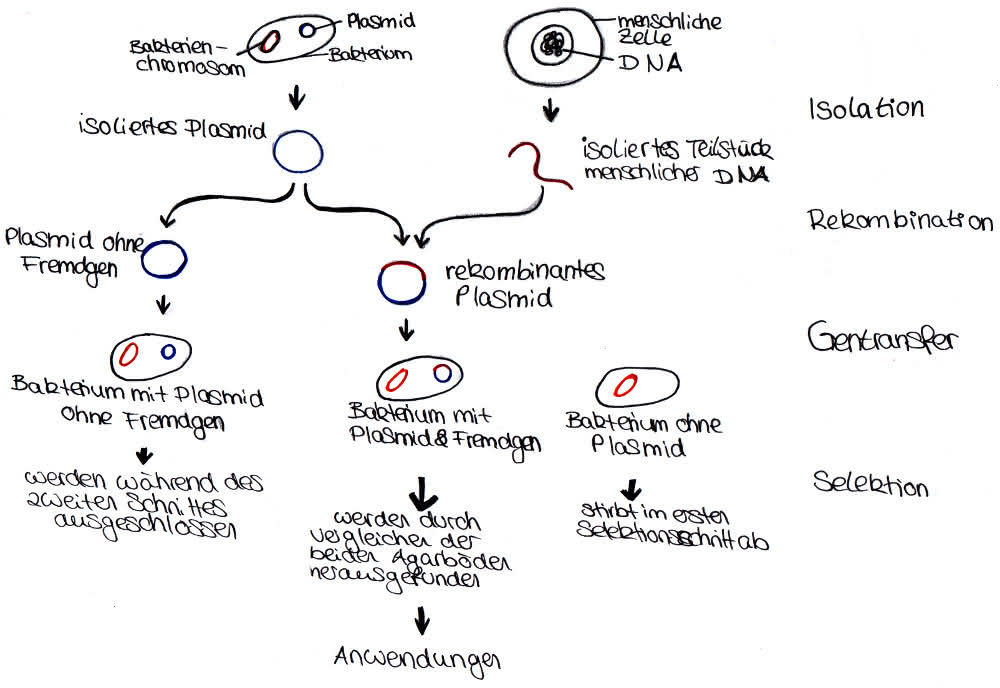 Plasmid
Bakterien-
chromosom
Bakterium
menschliche
Zelle
DNA
Isolation
isoliertes Plasmid
isoliertes Teilstück
menschlicher DNA
Rekombination
Plasmid ohne
Fremdgen
rekombinantes
Plasmid
Gentransfer
Bakterium mit Plasmid
ohne Fremdgen
Bakterium mit
Plasmid & Fremdgen
Bakterium ohne
Plasmid
Selektion
werden während des
zweiten Schrittes
ausgeschlossen
werden durch
vergleichen der
beiden Agarböden
herausgefunden
stirbt im ersten
Selektionsschritt ab
Anwendungen